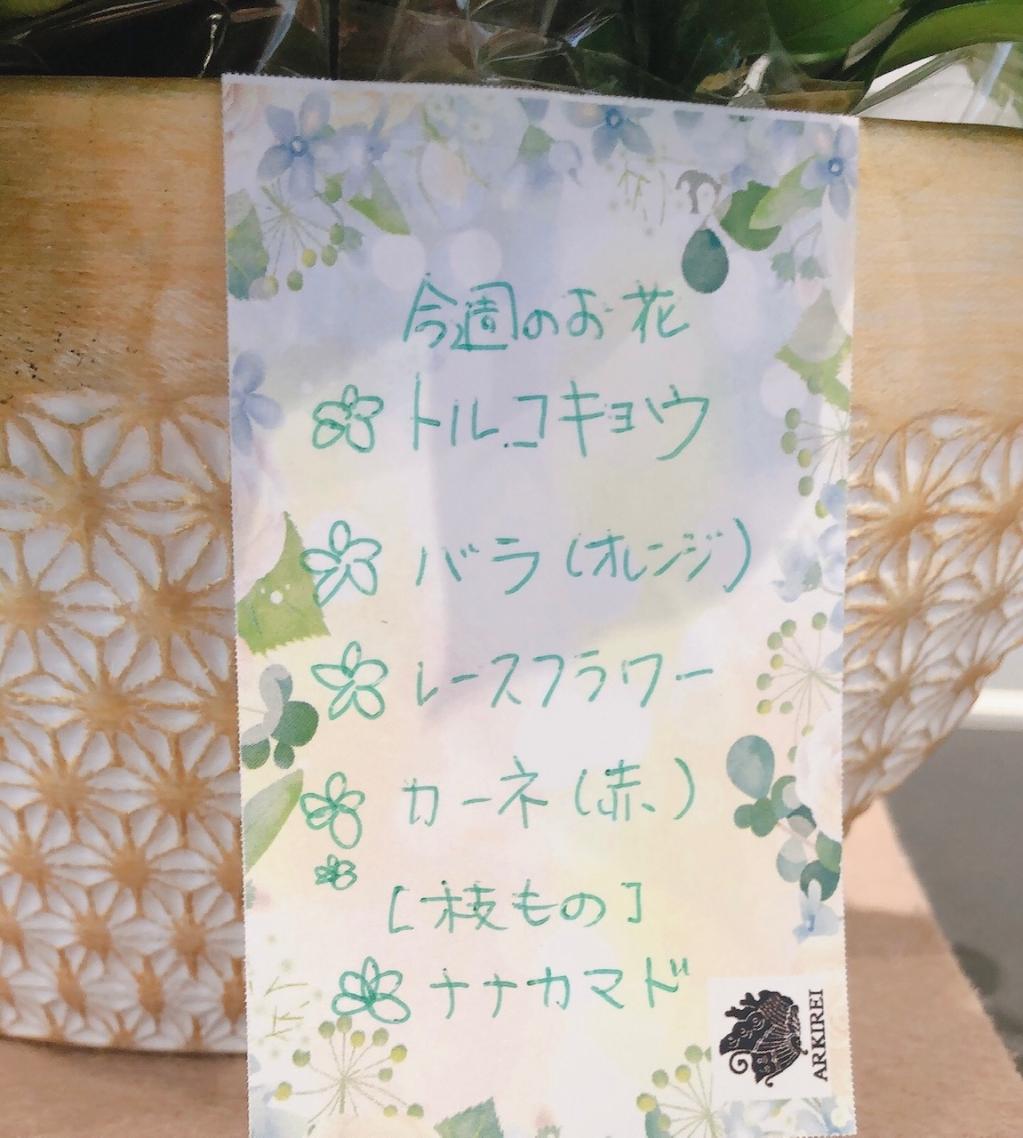 今週のお花
トルコキョウ
バラ(オレンジ)
レースフラワー
カーネ(赤)
[枝もの]
ナナカマド
ARKIREI